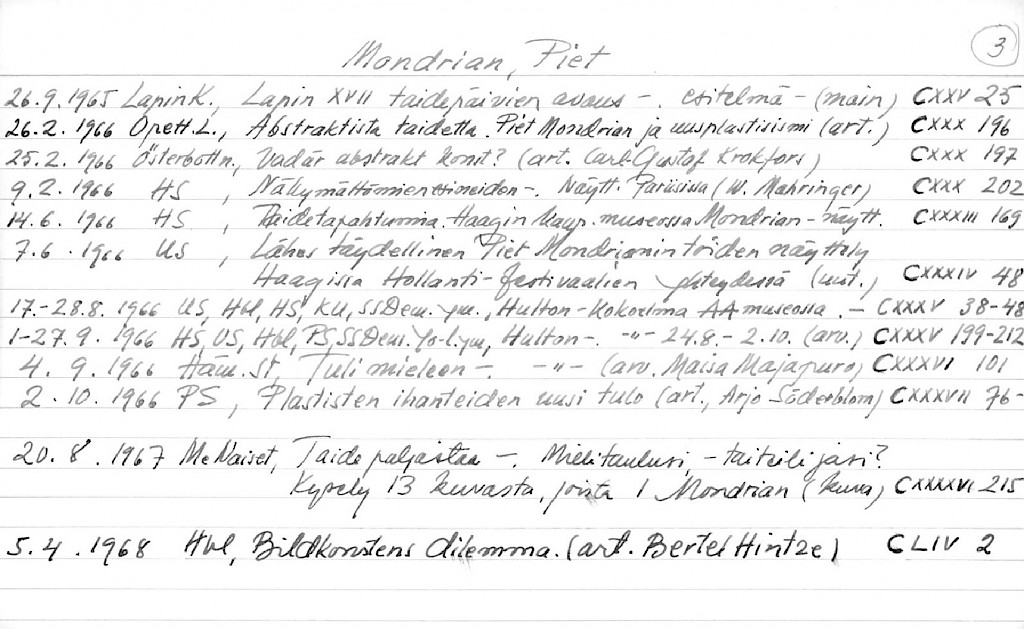 3
Mondrian, Piet
26.9.1965 LapinK., Lapin XVII taidepäivien avaus -. esitelmä - (main) CXXV 25
26.2.1966 Opett.L., Abstraktista taidetta. Piet Mondrian ja uusplastisismi (art.) CXXX 196
25.2.1966 Österbottn., Vad är abstrakt konst? (art. Carl-Gustaf Krokfors) CXXX 197
9.2.1966 HS, Näkymättömien esineiden -. Näytt. Pariisissa (W. Mahringer) CXXX 202
14.6.1966 HS, Taidetapahtuma. Haagin kaup. museossa Mondrian-näytt. CXXXIII 169
7.6.1966 US, Lähes täydellinen Piet Mondrianin töiden näyttely
Haagissa Hollanti-festivaalien yhteydessä (uut.) CXXXIV 48
17.-28.8.1966 US, Hbl, HS, KU, SSDem. ym., Hulton-kokoelma AA museossa. - CXXXV 38-48
1-27.9.1966 HS, US, Hbl, PS, SSDem. ym, Hulton-. -"- 24.8.-2.10. (arv.) CXXXV 199-212
4.9.1966 Häm.St, Tuli mieleen -. -"- (arv. Maisa Majapuro) CXXXVI 101
2.10.1966 PS, Plastisten ihanteiden uusi tulo (art., Arjo Söderblom) CXXXVII 76-
20.8.1967 MeNaiset, Taide paljastaa -. Mielitaulusi, - taiteilijasi?
Kysely 13 kuvasta, joista 1 Mondrian (kuva) CXXXXVI 215
5.4.1968 Hbl, Bildkonstens dilemma. (art. Bertel Hintze) CLIV 2